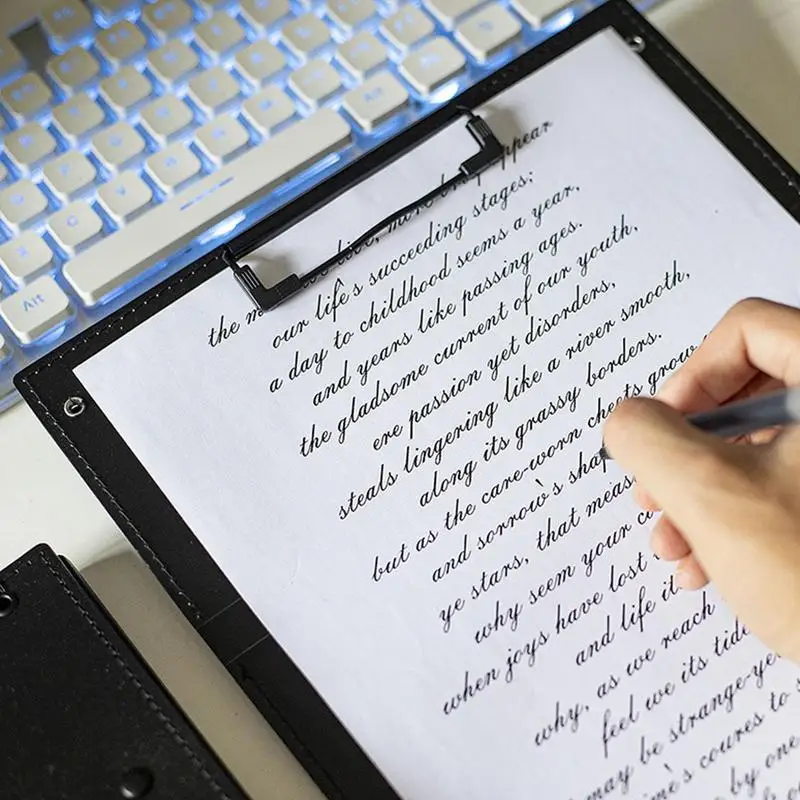 Alt
Alt
C
V
the we live, more appear
our life's succeeding stages;
a day to childhood seems a year,
and years like passing ages.
the gladsome current of our youth,
ere passion yet disorders,
steals lingering like a river smooth,
along its grassy borders.
but as the care-worn cheets grow
and sorrow's
ye stars, that
why seem your
when joys have lost
and life
why, as we reach
feel we its
may be strange-
coures to
by one